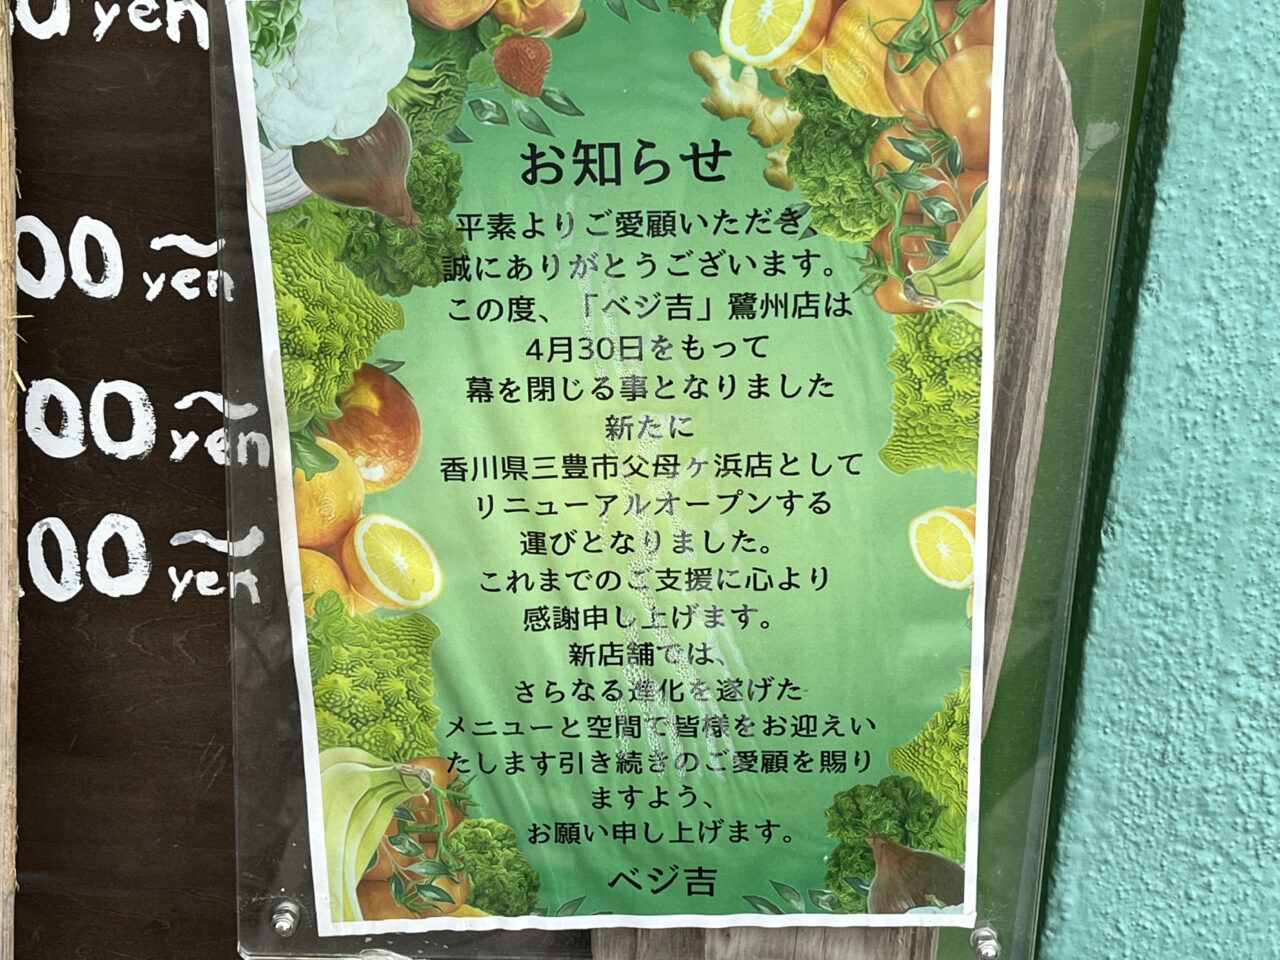 0 yen
00 ~
yen
00 ~
yen
00 ~
yen
お知らせ
平素よりご愛顧いただき、
誠にありがとうございます。
この度、「ベジ吉」鷺州店は
4月30日をもって
幕を閉じる事となりました
新たに
香川県三豊市父母ヶ浜店として
リニューアルオープンする
運びとなりました。
これまでのご支援に心より
感謝申し上げます。
新店舗では、
さらなる進化を遂げた
メニューと空間で皆様をお迎えい
たします引き続きのご愛顧を賜り
ますよう、
お願い申し上げます。
ベジ吉